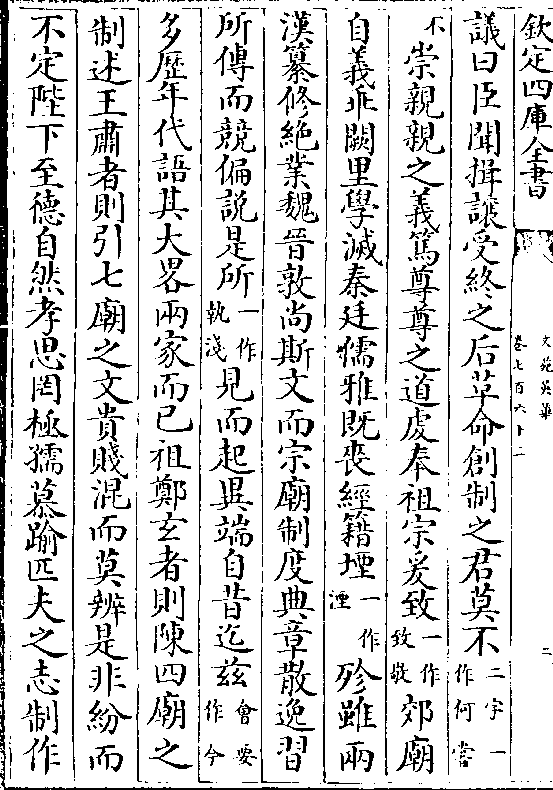 欽定四庫全書
文苑英華
卷七百六十二
二
議曰臣聞揖讓受終之后革命創制之君莫不二字一作何嘗
不崇親親之義篤尊尊之道虔奉祖宗爰致一作致敬郊廟
自義乖闕里學滅秦廷儒雅既喪經籍堙一作湮殄雖兩
漢纂修絶業魏晉敦尚斯文而宗廟制度典章散逸習
所傳而競偏説是所一作執淺見而起異端自昔迄兹會要作今
多歴年代語其大畧兩家而已祖鄭玄者則陳四廟之
制述王肅者則引七廟之文貴賤混而莫辨是非紛而
不定陛下至德自然孝思罔極孺慕踰匹夫之志制作